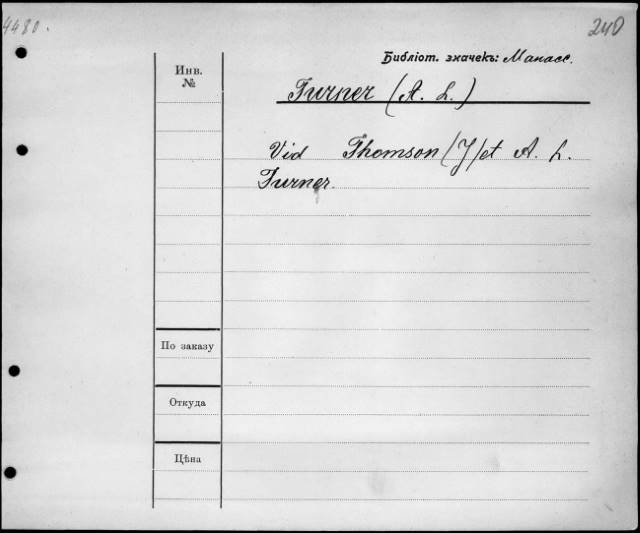 4480.
240
Библіот. значекъ: Манасс.
Инв.
№
Turner (A. L.)
Vid Thomson (J) et A. L.
Turner.
По заказу
Откуда
Цѣна